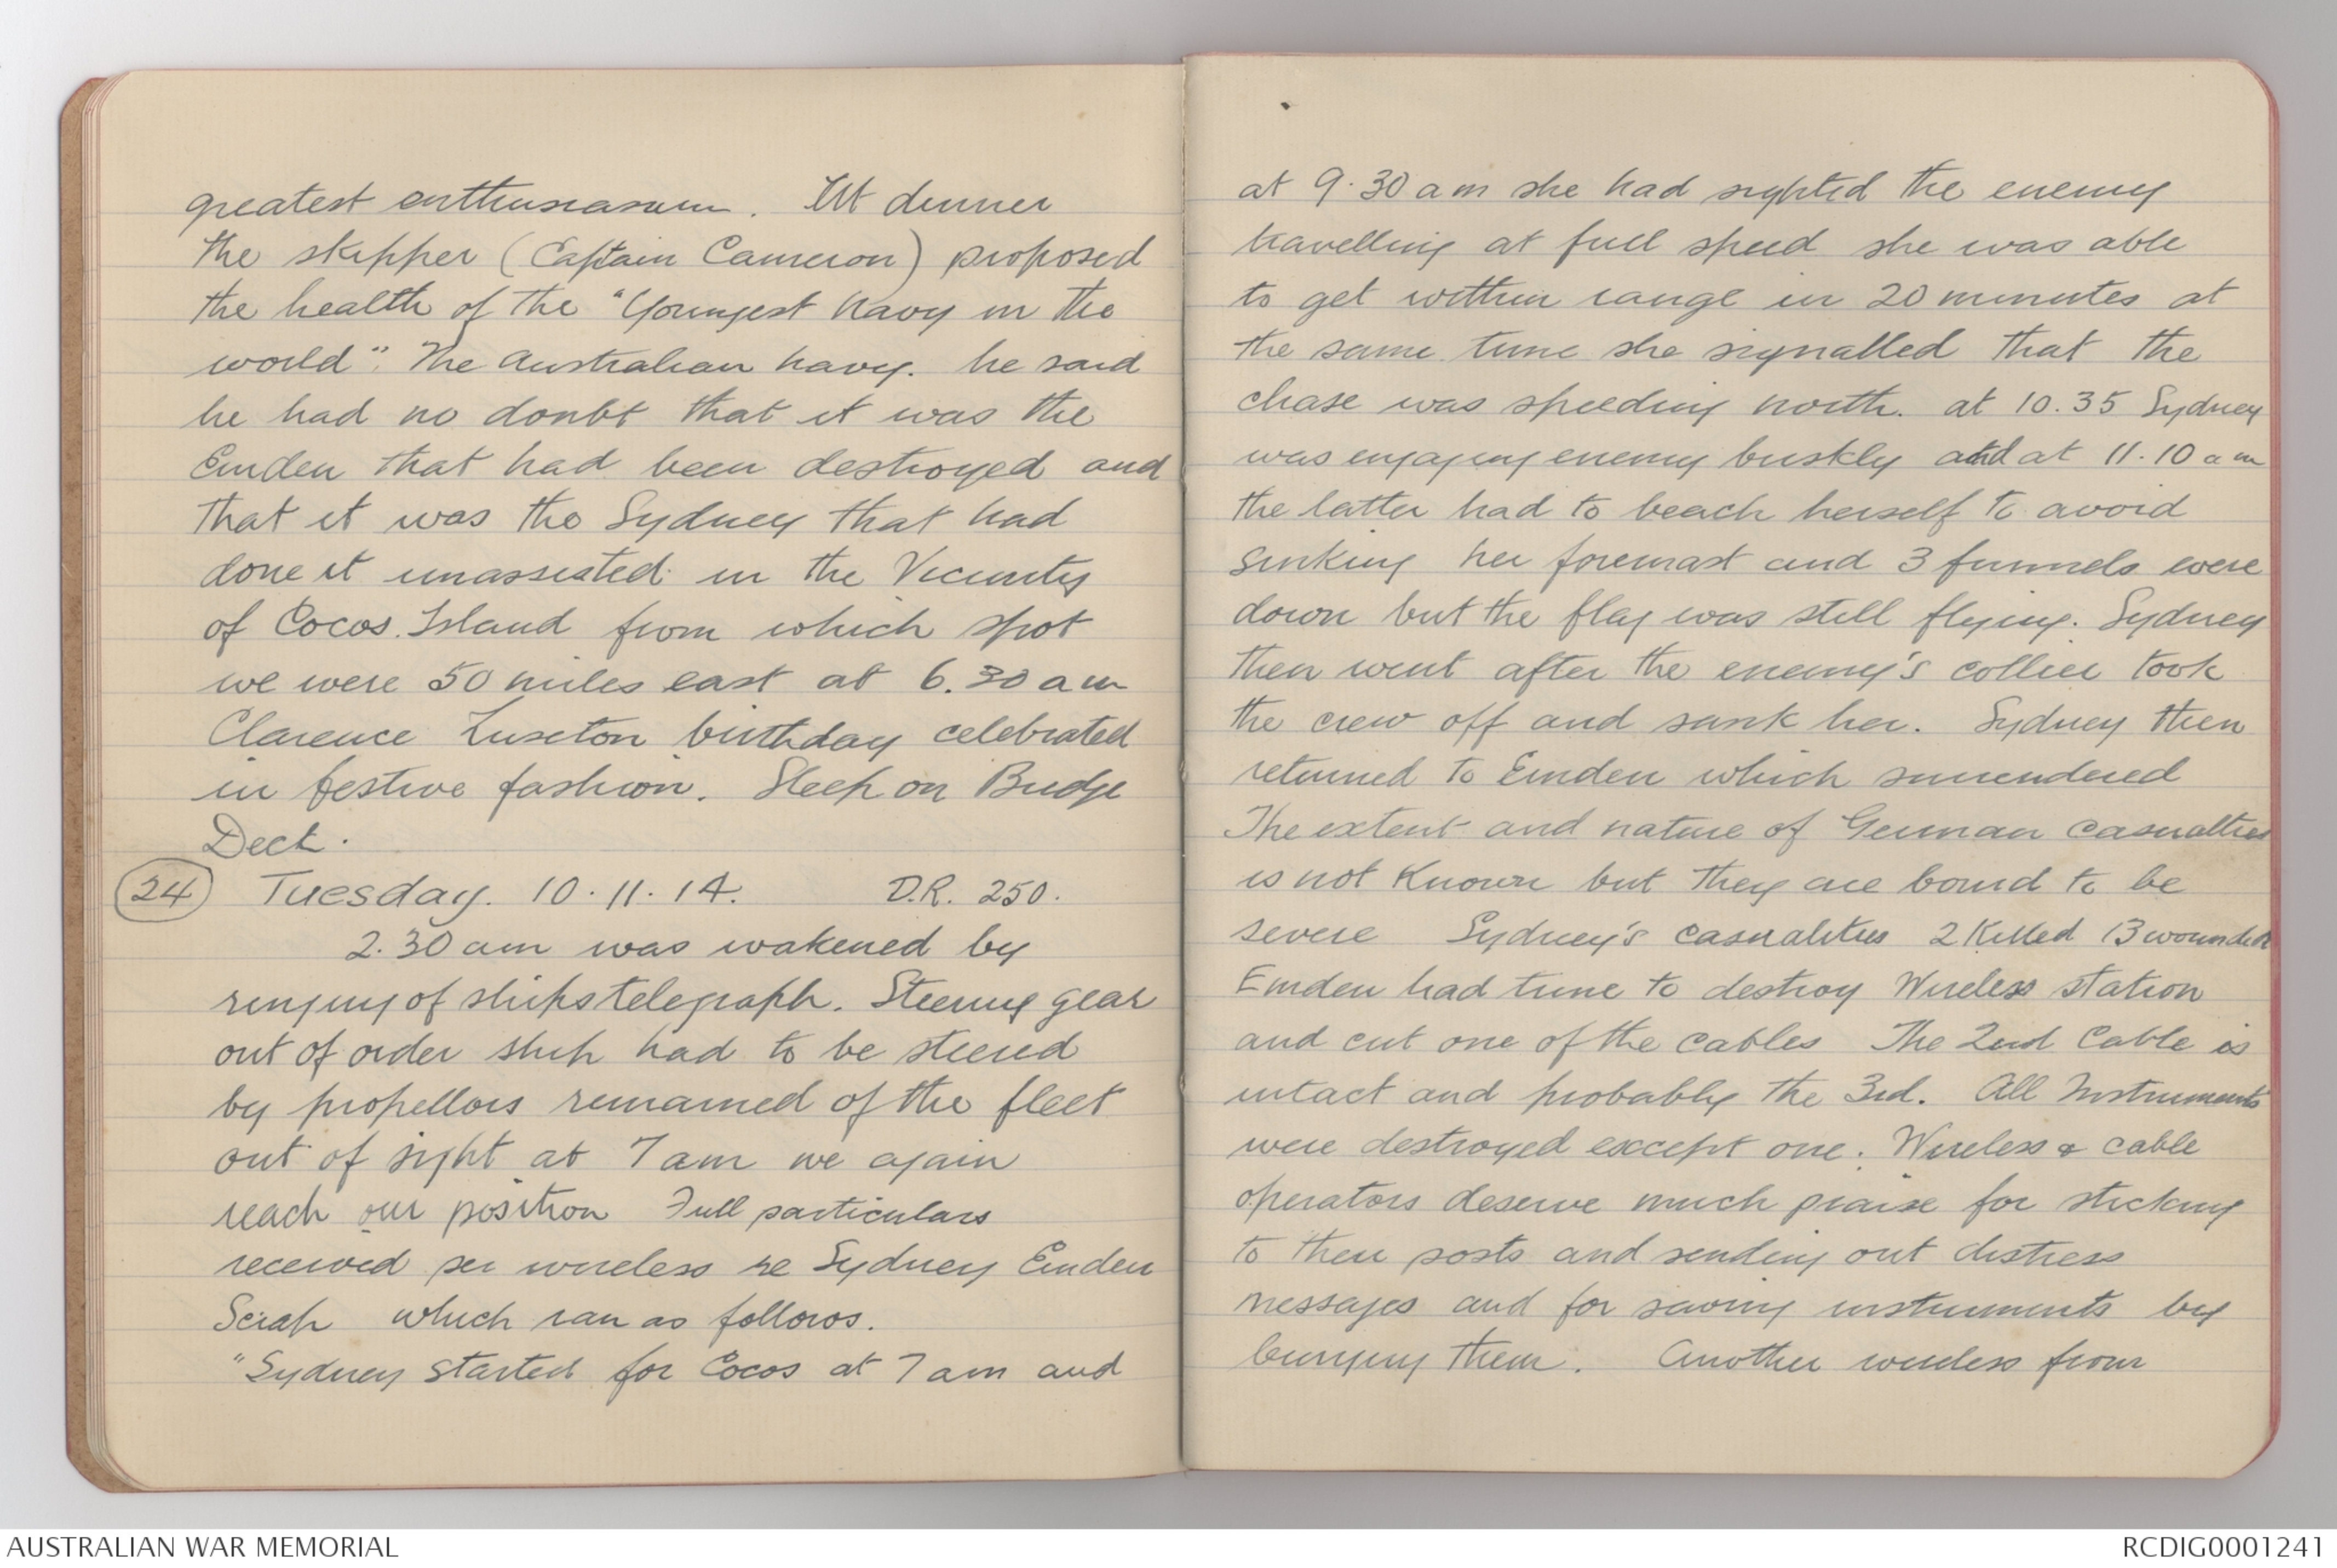 greatest enthusiasum. At dinner
the skipper (Captain Cameron) proposed
the health of the "Youngest navy in the
world". The Australian navy. he said
he had no doubt that it was the
Emden that had been destroyed and
that it was the Sydney that had
done it unassisted in the Vicinity
of Cocos. Island from which spot
we were 50 miles east at 6.30 am
Clarence birthday celebrated
in festive fashion. Sleep on Bridge
Deck.
24 Tuesday. 10.11.14. D.R. 250.
2.30 am was wakened by
ringing of ships telegraph. Steering gear
out of order ship had to be steered
by propellors remained of the fleet
out of sight at 7 am we again
reach our position Full particulars
received per wireless re Sydney Emden
Scrap which ran as follows.
"Sydney started for Cocos at 7 am and
at 9.30 am she had sighted the enemy
travelling at full speed she was able
to get within range in 20 minutes at
the same time she signalled that the
chase was speeding north. at 10.35 Sydney
was engaging enemy briskly and at 11.10 am
the latter had to beach herself to avoid
sinking her foremast and 3 funnels were
down but the flag was still flying. Sydney
then went after the enemy's collier took
the crew off and sank her. Sydney then
returned to Emden which surrendered
The extent and nature of German casualties
is not known but they are bound to be
severe Sydney's casualities 2 Killed 13 wounded
Emden had time to destroy Wireless station
and cut one of the cables The 2nd Cable is
intact and probably the 3rd. All Instruments
were destroyed except one. Wireless & cable
operators deserve much praise for sticking
to their posts and sending out distress
messages and for saving instruments by
burying them. Another wireless from
AUSTRALIAN WAR MEMORIAL
RCDIG0001241